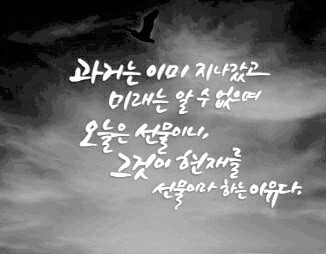 과거는 이미 지나갔고
미래는 알 수 없으며
오늘은 선물이니,
그것이 현재를
선물이라 하는 이유다.